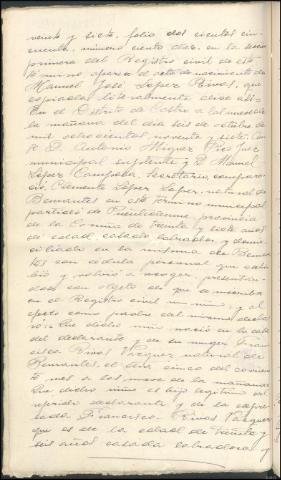 veinte y siete, folio doscientos cin-
cuenta, numero ciento diez, en la seccion
primera del Registro civil de este
termino aparece el acta de nacimiento de
Manuel José Lopez Rivas, que
copiada literalmente dice asi:
En el Distrito de Castro a las nueve de
la mañana del dia seis de octubre de
mil ochocientos noventa y siete: ante
D. Antonio Miguez Pico Juez
municipal suplente y D. Manuel
Lopez Secretario, comparo-
cio, Clemente Lopez Lopez, natural de
Bemantes en este termino municipal
partido de Puentedeume, provincia
de la Coruña de treinta y siete años
de edad, casado labrador, y domi-
ciliado en la misma de Beman-
tes con cedula personal que exhi-
bió y volvió a recoger, presentan-
dose con objeto de que se inscriba
en el Registro civil un niño, y al
efecto como padre del mismo declaro:
Que dicho niño nació en la casa
del declarante de su muger Fran-
cisca Rivas Vazquez natural de
Bemantes, el dia cinco del corrien-
te mes a las once de la mañana:
Que dicho niño es hijo legitimo del
referido declarante y de la expre-
sada Francisca Rivas Vazquez
que es de la edad de treinta y
seis años casada labradora y